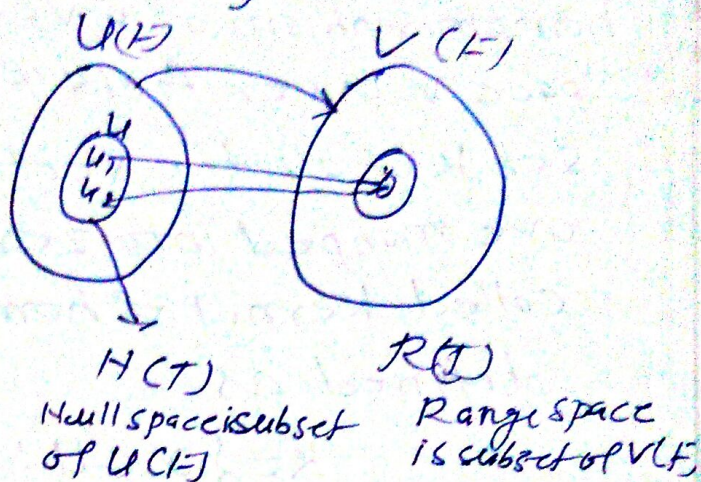 U(F)
V(F)
U
u₁
u₂
0
N(T)
R(T)
Null space is subset
of U(F)
Range space
is subset of V(F)